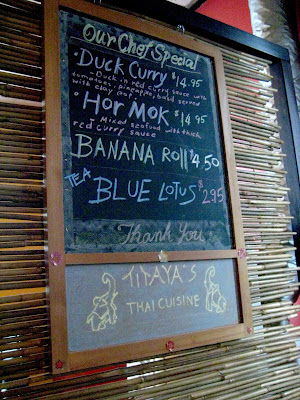 Our Chef Special
· DUCK CURRY $14.95
- Duck in red curry sauce with
tomatoes, pineapple, basil served
with clay pot
· HOR MOK $14.95
Mixed seafood with thick
red curry sauce
BANANA Roll $4.50
TEA BLUE LOTUS $2.95
Thank You
TITAYA'S
THAI CUISINE